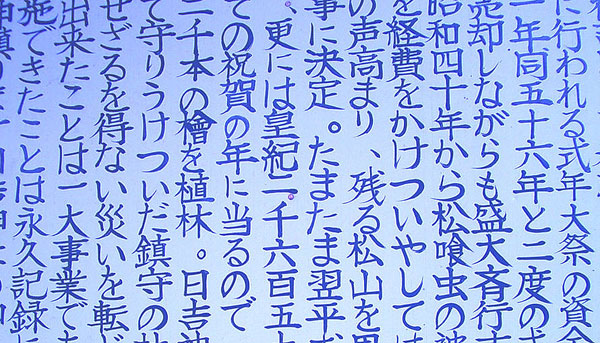 に行われる式年大祭の資金
一年同五十六年と二度の式
売却しながらも盛大斉行す
昭和四十年から松喰虫の被
を経費をかけついやしては
の声高まり、残る松山を
事に決定。たまたま翌平
、更には皇紀二千六百五十
ての祝賀の年に当るので
二千本の檜を植林。日吉神
て守りうけついだ鎮守の
せざるを得ない災いを転じ
出来たことは一大事業であ
施できたことは永久記録に